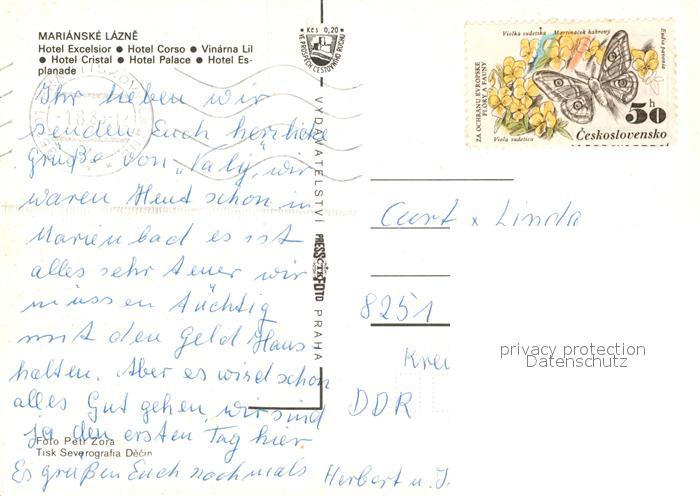 MARIÁNSKÉ LÁZNĚ
Hotel Excelsior ● Hotel Corso ● Vinárna Lil
● Hotel Cristal ● Hotel Palace ● Hotel Es-
planade
Ihr lieben wir
senden Euch herzliche
Grüße von „Valy", wir
waren Heut schon in
Marienbad es ist
alles sehr teuer wir
müssen tüchtig
mit den Geld Haus-
halten. Aber es wird schon
alles Gut gehen, wir sind
ja den ersten Tag hier
Es grüßen Euch nochmals Herbert u. I.
Foto Petr Zora
Tisk Severografia Děčín
Kčs 0,20
VE PROSPĚCH CESTOVNÍHO RUCHU
VYDAVATELSTVÍ PRESSFOTO PRAHA
ČTK
Violka sudetska Martináček habrový
Eudia pavonia
ZA OCHRANU EVROPSKÉ
FLÓRY A FAUNY
Viola sudetica
50 h
Československo
Curt x Linda
8251
Krei
DDR
privacy protection
Datenschutz